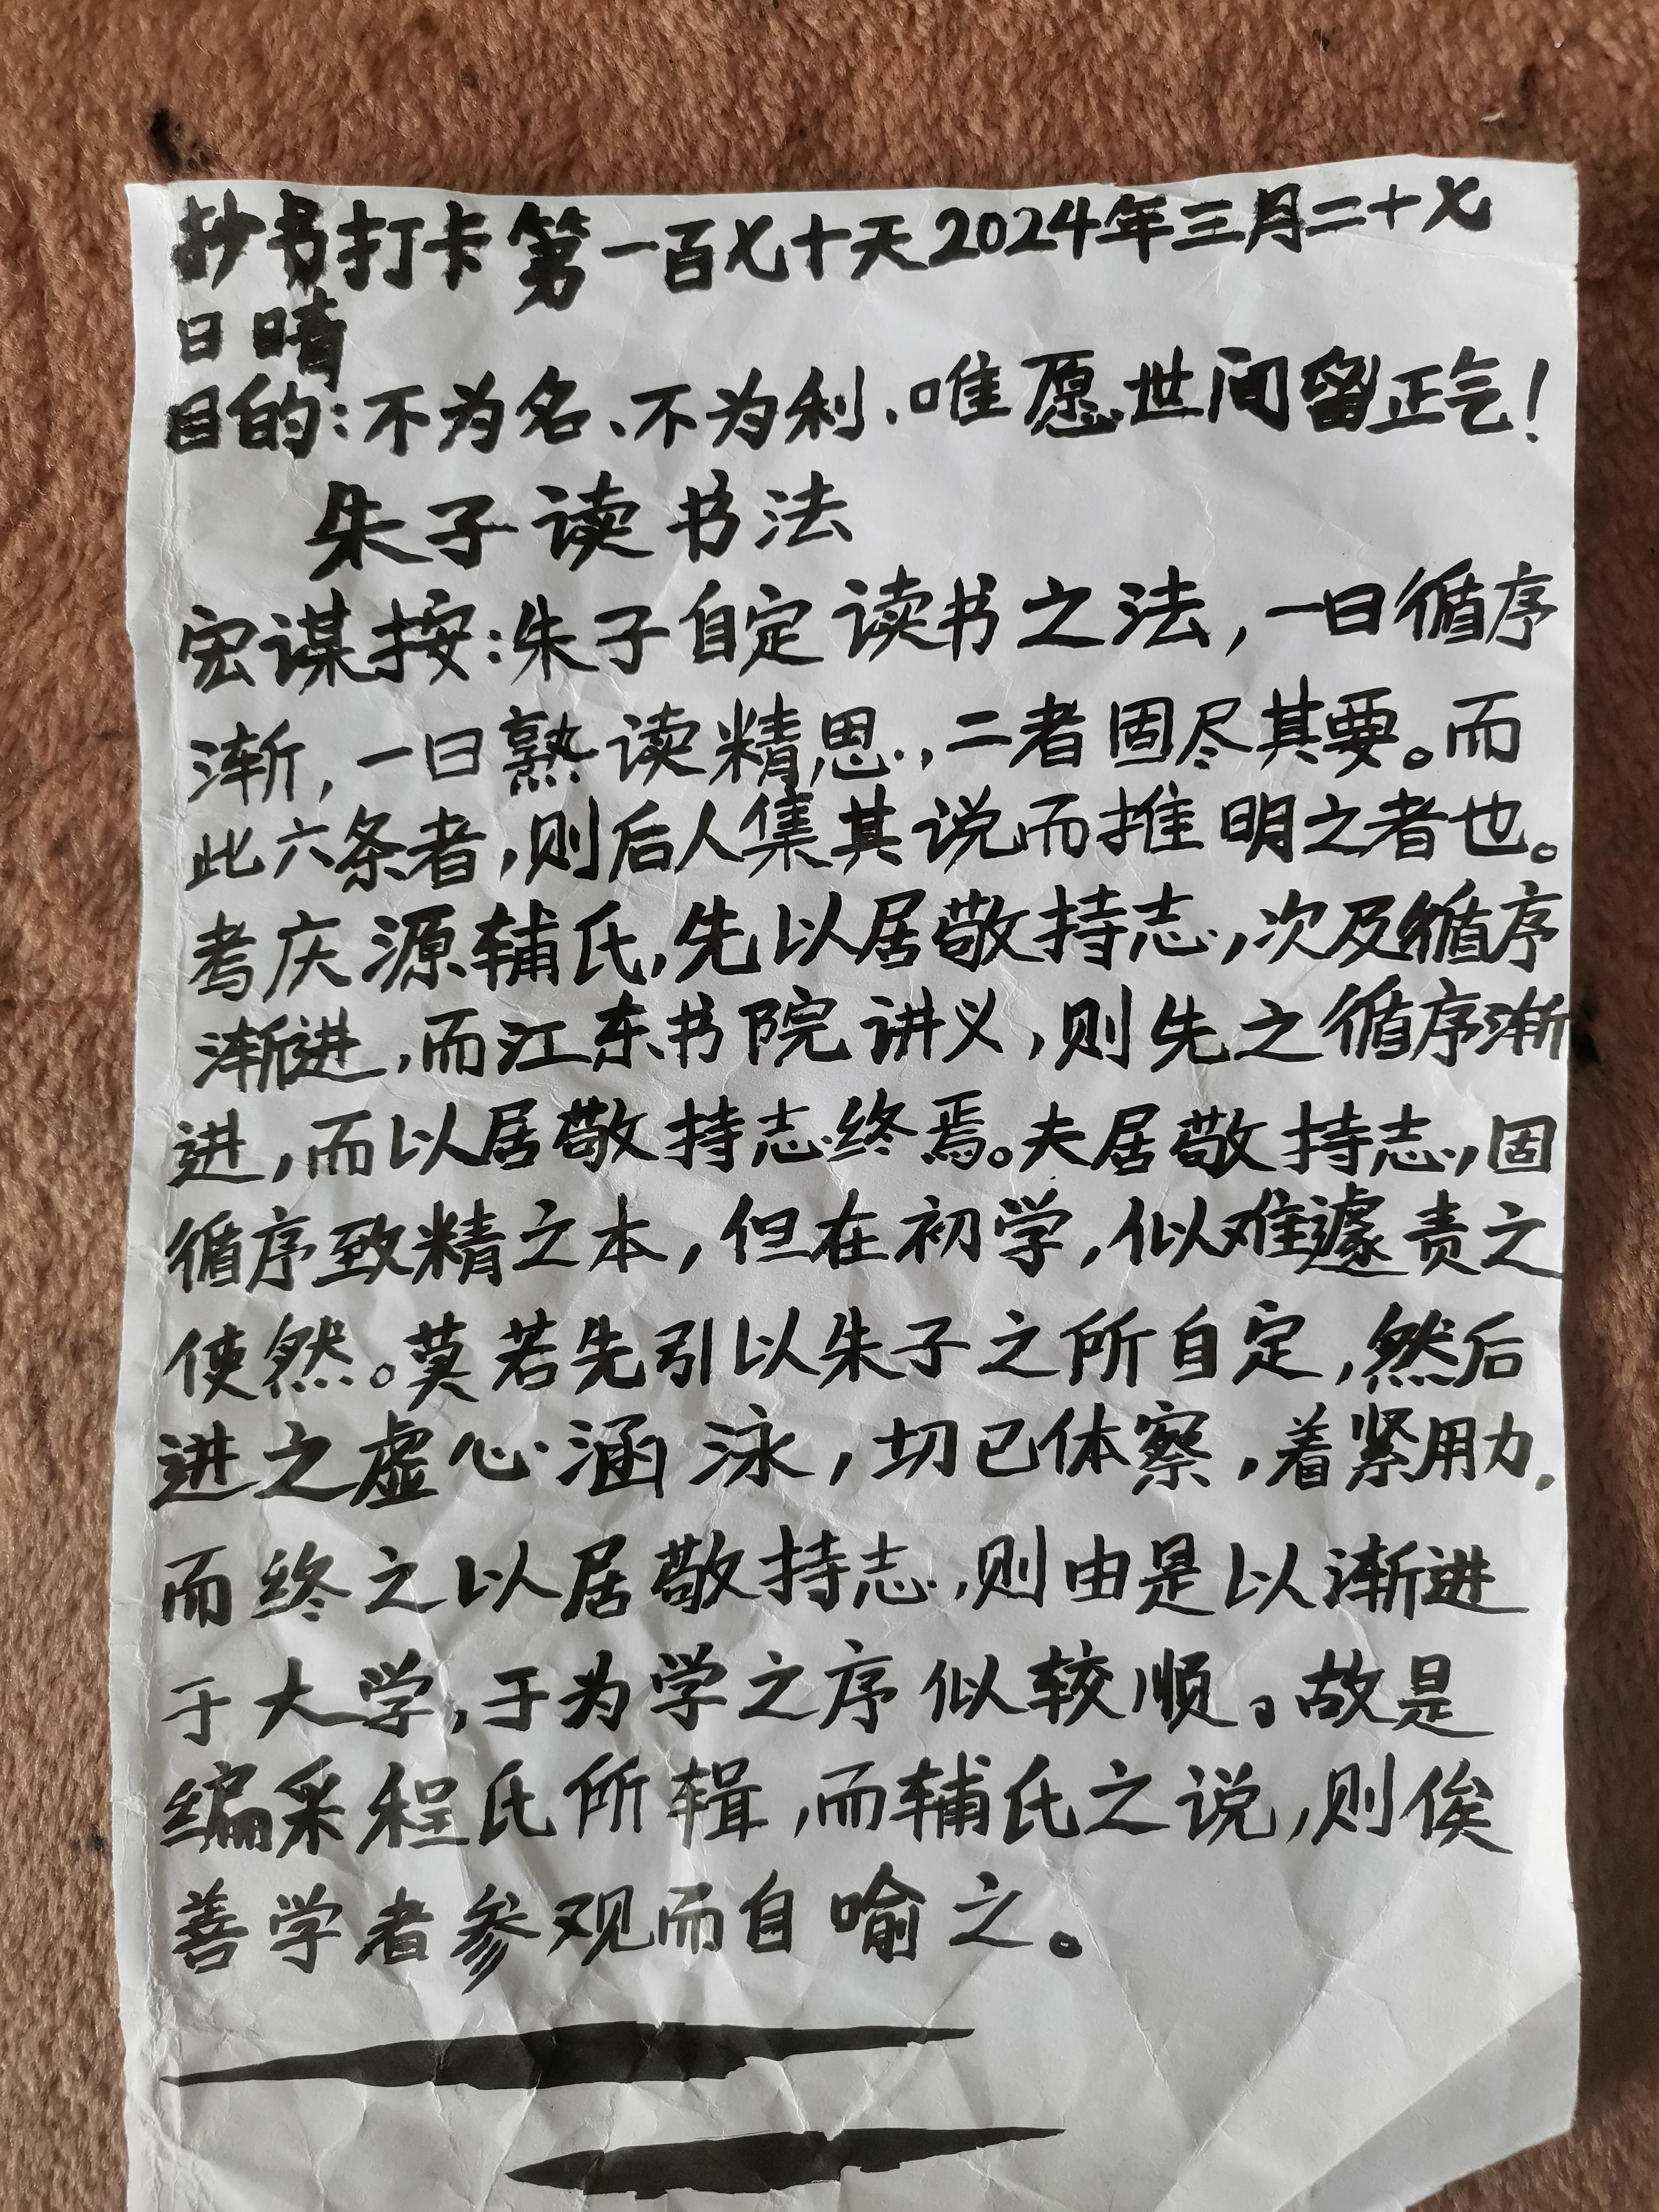 抄书打卡第一百七十天2024年三月二十七
日晴
目的:不为名、不为利、唯愿世间留正气!
朱子读书法
宏谋按:朱子自定读书之法,一曰循序
渐,一曰熟读精思,二者固尽其要。而
此六条者,则后人集其说而推明之者也。
考庆源辅氏,先以居敬持志,次及循序
渐进,而江东书院讲义,则先之循序渐
进,而以居敬持志终焉。夫居敬持志,固
循序致精之本,但在初学,似难遽责之
使然。莫若先引以朱子之所自定,然后
进之虚心涵泳,切己体察,着紧用力,
而终之以居敬持志,则由是以渐进
于大学,于为学之序似较顺。故是
编采程氏所辑,而辅氏之说,则俟
善学者参观而自喻之。